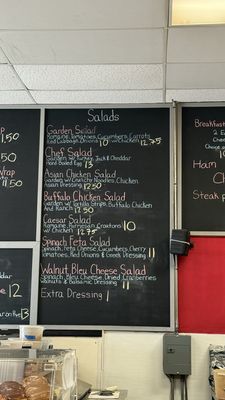 Salads
Garden Salad
Romaine, Tomatoes, Cucumbers, Carrots
Red Cabbage, Onions 10 w/ Chicken 12.75
Chef Salad
Garden w/ Turkey, Jack & Cheddar
Hard Boiled Egg 13
Asian Chicken Salad
Garden w/ Crunchy Noodles, Chicken
Asian Dressing 12.50
Buffalo Chicken Salad
Garden w/ Tortilla Strips, Buffalo Chicken
and Ranch 12.50
Caesar Salad
Romaine, Parmesan, Croutons 10
w/ Chicken 12.75
Spinach Feta Salad
Spinach, Feta Cheese, Cucumbers, Cherry
Tomatoes, Red Onions & Greek Dressing 11
Walnut Bleu Cheese Salad
Spinach, Bleu Cheese, Dried Cranberries
Walnuts & Balsamic Dressing 11
Extra Dressing 1
1.50
.50
rap
11.50
e 12
13
Breakfast
Ham
Steak